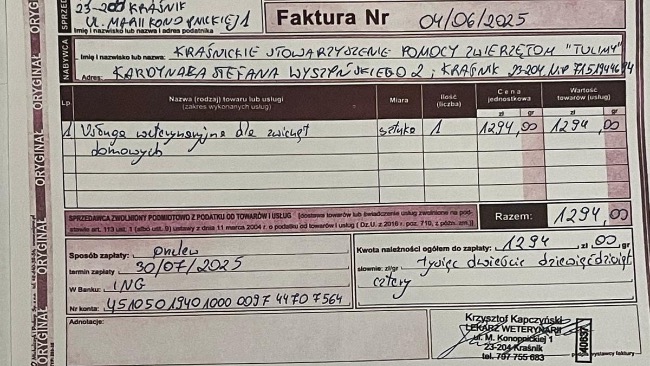 23-200 KRAŚNIK
UL. MARII KONOPNICKIEJ 1
Imię i nazwisko lub nazwa i adres podatnika
Faktura Nr 04/06/2025
SPRZED
NABYWCA
Imię i nazwisko lub nazwa: KRAŚNICKIE STOWARZYSZENIE POMOCY ZWIERZĘTOM "TULIMY"
Adres: KARDYNAŁA STEFANA WYSZYŃSKIEGO 2, KRAŚNIK 23-204 NIP
Lp
Nazwa (rodzaj) towaru lub usługi
(zakres wykonanych usług)
Miara
Ilość
(liczba)
Cena
jednostkowa
zł gr
Wartość
towarów (usług)
zł gr
1 Usługa weterynaryjna dla zwierząt sztuka 1 1294,00 1294,00
domowych
SPRZEDAWCA ZWOLNIONY PODMIOTOWO Z PODATKU OD TOWARÓW I USŁUG [dostawa towarów lub świadczenie usług zwolnione na pod-
stawie art. 113 ust. 1 (albo ust. 9) ustawy z dnia 11 marca 2004 r. o podatku od towarów i usług (Dz. U. z 2016 r. poz. 710, z późn. zm.)]
Razem: 1294,00
Sposób zapłaty: przelew
termin zapłaty 30/07/2025
W Banku: ING
Nr konta: 45 1050 1940 1000 0097 4470 7564
Kwota należności ogółem do zapłaty: 1294 zł 00 gr
słownie: zł/gr tysiąc dwieście dziewięćdziesiąt
cztery
Adnotacje:
Krzysztof Kapczyński
LEKARZ WETERYNARII
ul. M. Konopnickiej 1
23-204 Kraśnik
tel. 797 755 683
wystawcy faktury
ORYGINAŁ
ORYGINAŁ
ORYGINAŁ
ORYGINAŁ